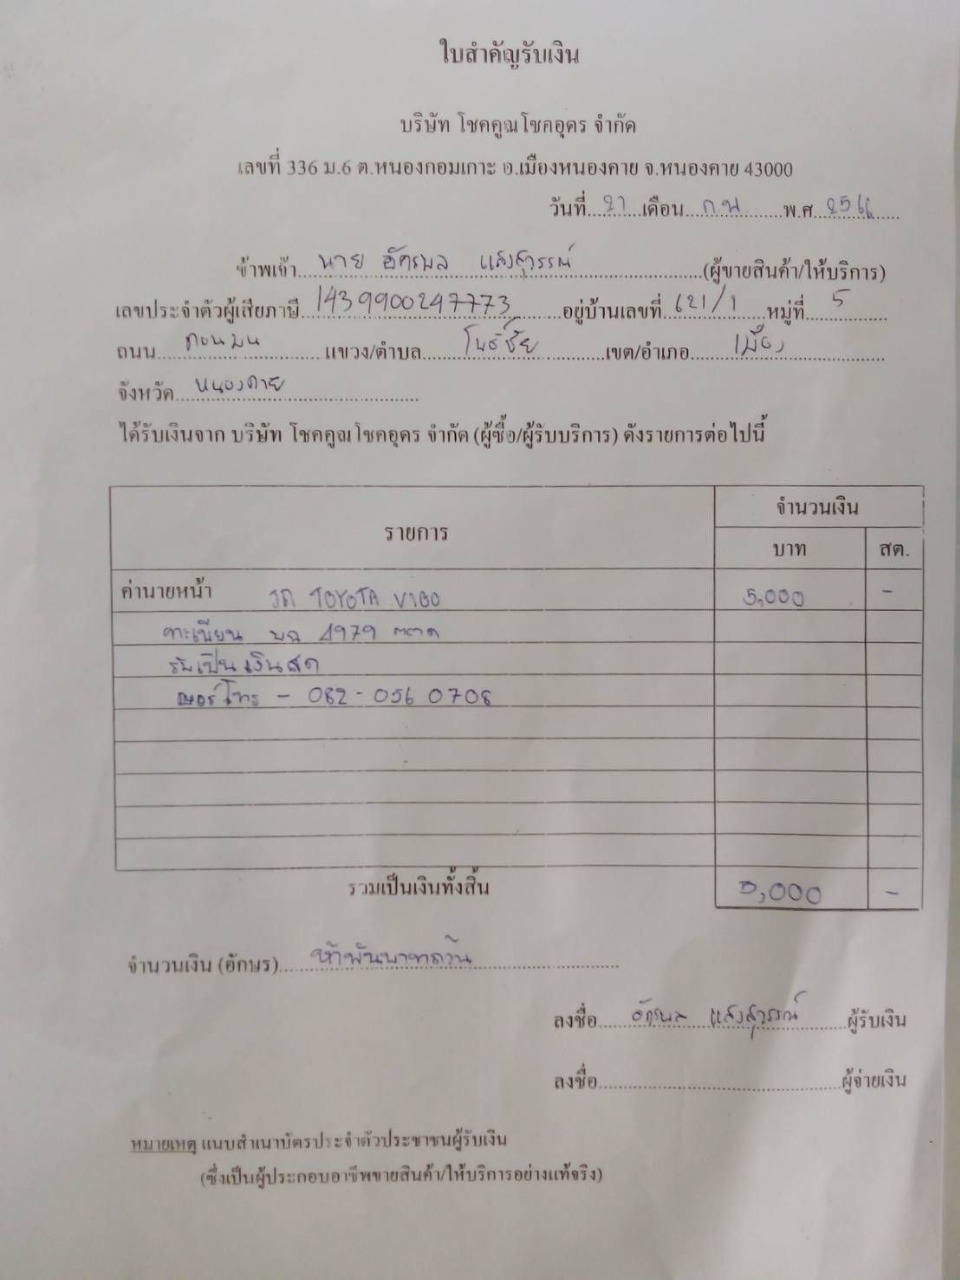 ใบสำคัญรับเงิน
บริษัท โชคคูณโชคอุดร จำกัด
เลขที่ 336 ม.6 ต.หนองกอมเกาะ อ.เมืองหนองคาย จ.หนองคาย 43000
วันที่ 21 เดือน ก.พ พ.ศ. 2566
ข้าพเจ้า นาย อัครพล แสงสุวรรณ์ (ผู้ขายสินค้า/ให้บริการ)
เลขประจำตัวผู้เสียภาษี 1439900247773 อยู่บ้านเลขที่ 621/1 หมู่ที่ 5
ถนน แขวง/ตำบล โพธิ์ชัย เขต/อำเภอ เมือง
จังหวัด หนองคาย
ได้รับเงินจาก บริษัท โชคคูณโชคอุดร จำกัด (ผู้ซื้อ/ผู้รับบริการ) ดังรายการต่อไปนี้
รายการ จำนวนเงิน
บาท สต.
ค่านายหน้า รถ TOYOTA VIGO 5,000 -
ทะเบียน 4979
รับเป็นเงินสด
เบอร์โทร - 082-056 0708
รวมเป็นเงินทั้งสิ้น 5,000 -
จำนวนเงิน (อักษร) ห้าพันบาทถ้วน
ลงชื่อ อัครพล แสงสุวรรณ์ ผู้รับเงิน
ลงชื่อ ผู้จ่ายเงิน
หมายเหตุ แนบสำเนาบัตรประจำตัวประชาชนผู้รับเงิน
(ซึ่งเป็นผู้ประกอบอาชีพขายสินค้า/ให้บริการอย่างแท้จริง)